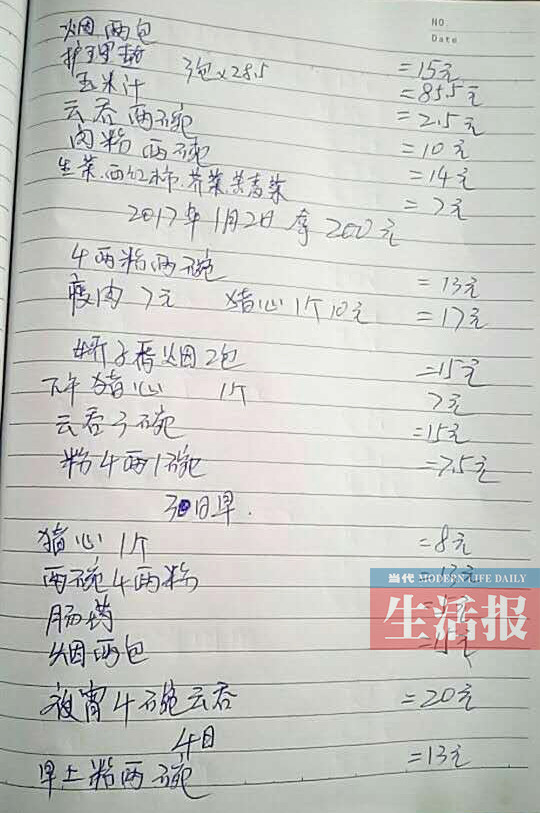 NO.
Date
烟两包 =15元
护理垫 3包×28.5 =85.5元
玉米汁 =2.5元
云吞两碗 =10元
肉粉两碗 =14元
生菜.西红柿.芥菜.苦麦菜 =7元
2017年1月2日拿200元
4两粉两碗 =13元
瘦肉7元 猪心1个10元 =17元
娇子香烟2包 =15元
下午猪心 1个 7元
云吞3碗 =15元
粉4两1碗 =7.5元
3日早.
猪心1个 =8元
两碗4两粉 =13元
肠药
烟两包 =15元
当代 MODERN LIFE DAILY
生活报
夜宵4碗云吞 =20元
4日
早上粉两碗 =13元